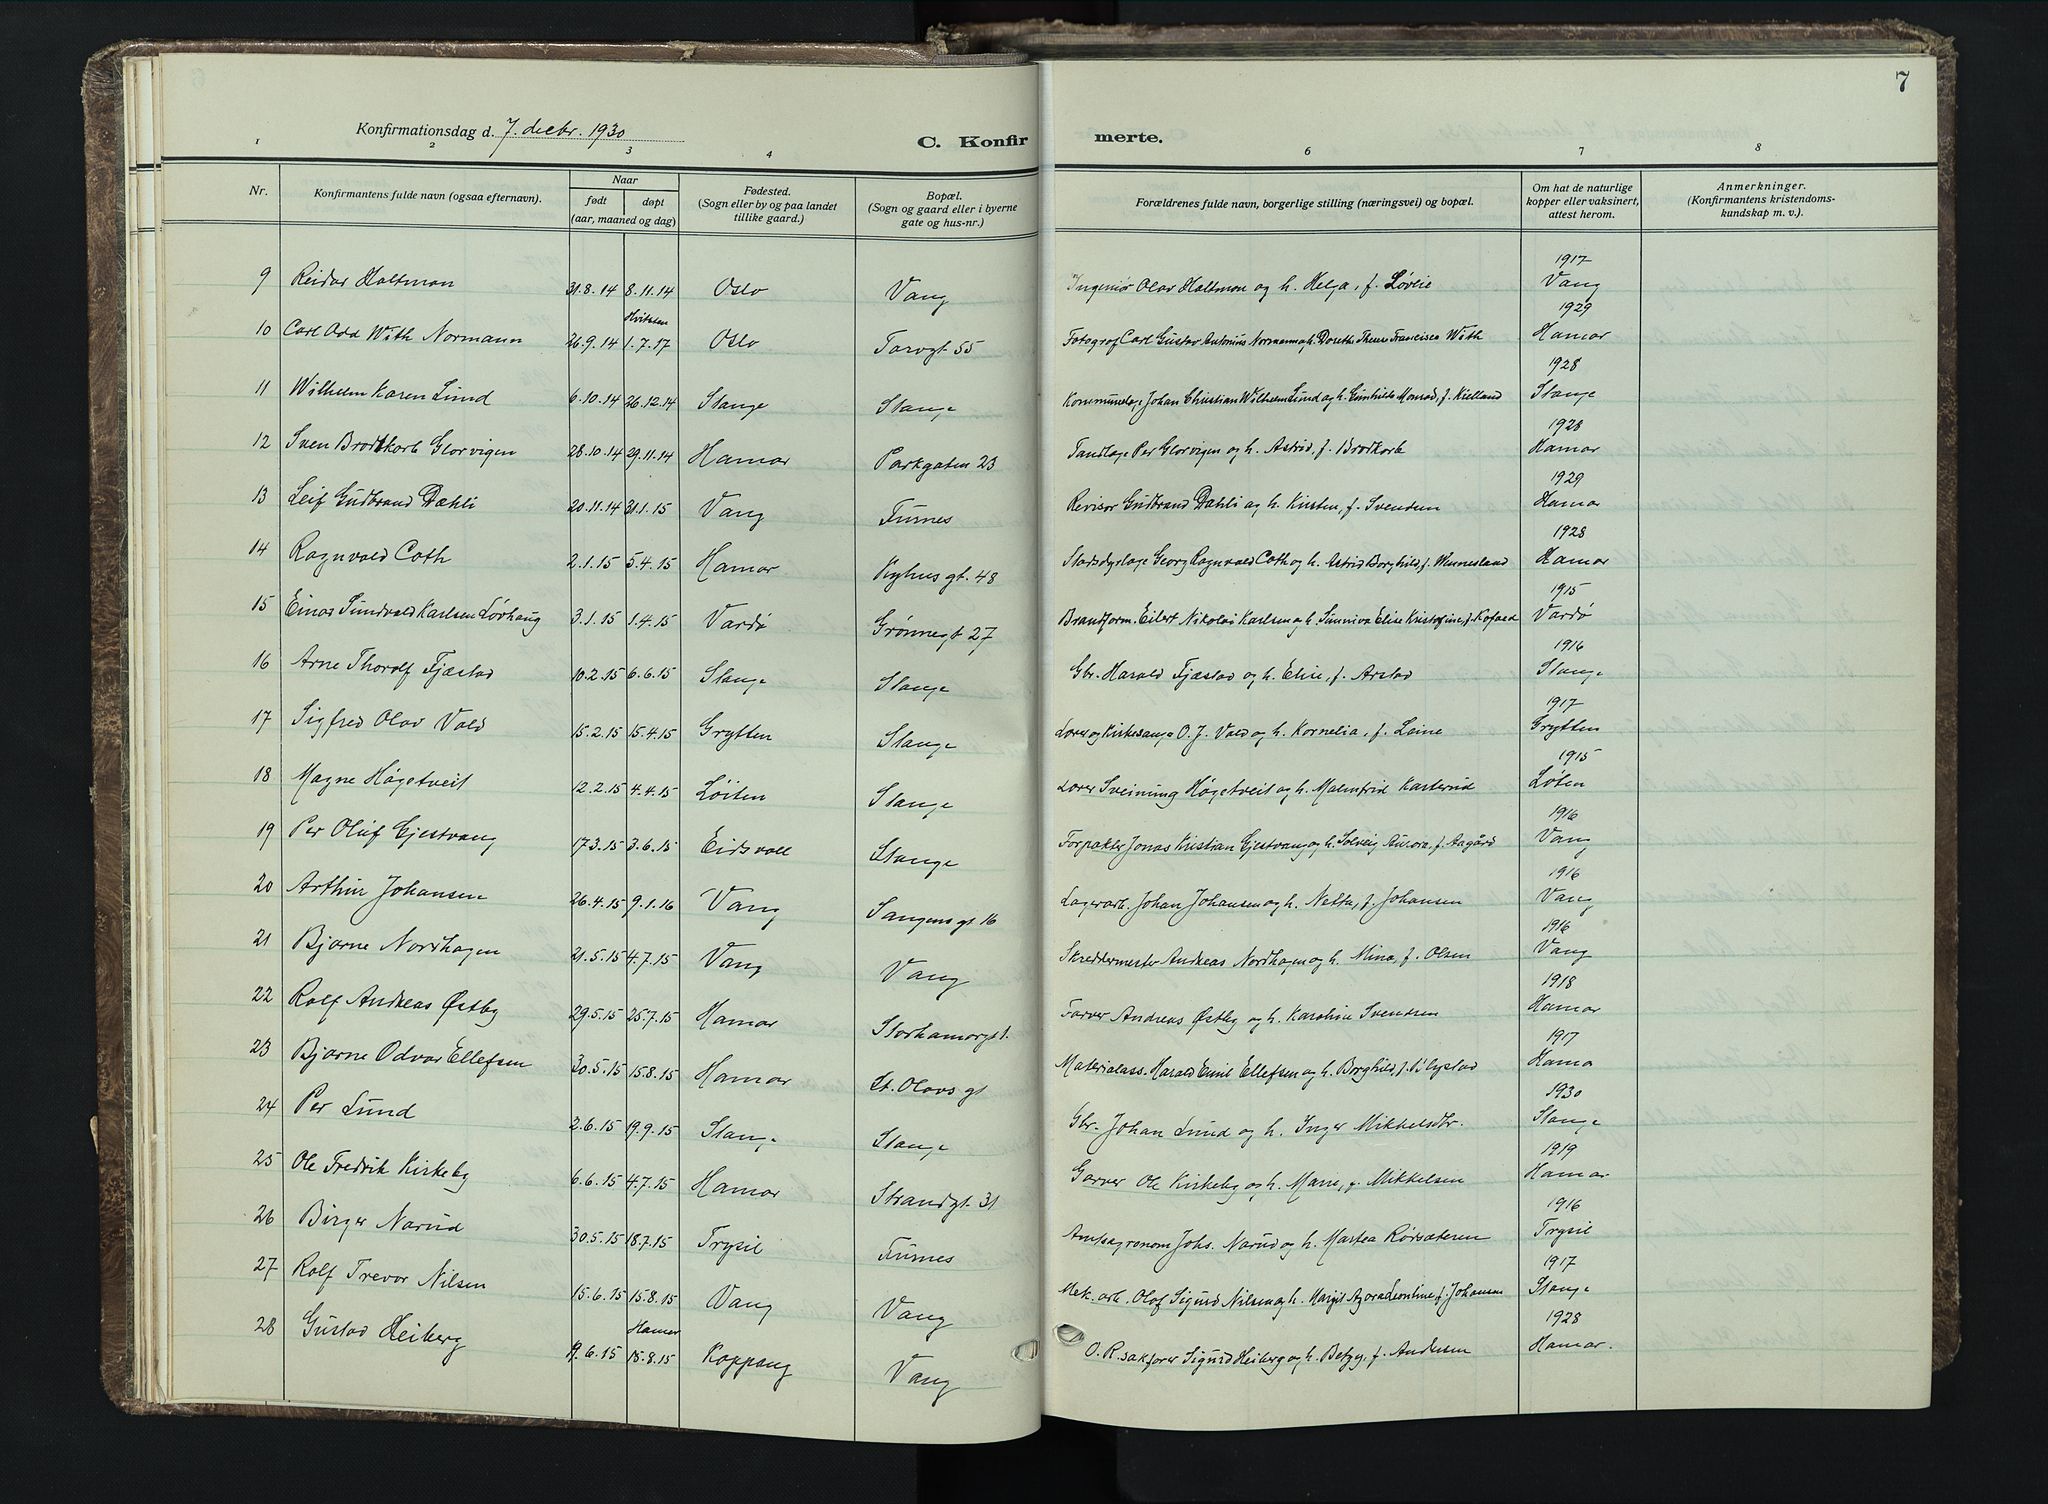 7
Konfirmationsdag d. 7. decbr. 1930
C. Konfirmerte.
1 2 3 4 6 7 8
Nr. Konfirmantens fulde navn (ogsaa efternavn). Naar født døpt (aar, maaned og dag) Fødested. (Sogn eller by og paa landet tillike gaard.) Bopæl. (Sogn og gaard eller i byerne gate og hus-nr.) Forældrenes fulde navn, borgerlige stilling (næringsvei) og bopæl. Om hat de naturlige kopper eller vaksinert, attest herom. Anmerkninger. (Konfirmantens kristendomskundskap m. v.).
9 Reidar Holtmon 31.8.14 8.11.14 Oslo Vang Ingeniør Olav Holtmon og h. Helga, f. Løvlie 1917 Vang
10 Carl Odd With Normann 26.9.14 Hvitsten 1.7.17 Oslo Torvgt. 55 Fotograf Carl Gustav Antonius Normann og h. Dorothea Francisca With 1929 Hamar
11 Wilhelm Karen Lund 6.10.14 26.12.14 Stange Stange Kommunelæge Johan Christian Wilhelm Lund og h. Gunhilde Monrad, f. Kielland 1928 Stange
12 Sven Brodtkorb Glorvigen 28.10.14 29.11.14 Hamar Parkgaten 23 Tandlæge Per Glorvigen og h. Astrid, f. Brodkorb 1928 Hamar
13 Leif Gudbrand Dæhli 20.11.14 31.1.15 Vang Furnes Revisor Gudbrand Dæhli og h. Kirsten, f. Svendsen 1929 Hamar
14 Ragnvald Coth 2.1.15 5.4.15 Hamar Kyhus gt. 48 Stadsdyrlæge Georg Ragnvald Coth og h. Astrid Borghild, f. Wennesland 1928 Hamar
15 Einar Sundvald Karlsen Løvhaug 3.1.15 1.4.15 Vardø Grønnegt 27 Brandform. Eilert Nikolai Karlsen og h. Sunniva Elise Kristofine, f. Kofoed 1915 Vardø
16 Arne Thorolf Fjæstad 10.2.15 6.6.15 Stange Stange Gbr. Harald Fjæstad og h. Elise, f. Arstad 1916 Stange
17 Sigfred Olav Vold 15.2.15 15.4.15 Grytten Stange Lærer og kirkesanger O. J. Vold og h. Kornelia, f. Leine 1917 Grytten
18 Magne Høgetveit 12.2.15 4.4.15 Løiten Stange Lærer Sveinung Høgetveit og h. Malmfrid Kasterud 1915 Løten
19 Per Oluf Gjestvang 17.3.15 3.6.15 Eidsvoll Stange Forpakter Jonas Kristian Gjestvang og h. Solveig Aurora, f. Aagård 1916 Vang
20 Arthur Johansen 26.4.15 9.1.16 Vang Sangens gt 16 Lagerarb. Johan Johansen og h. Netta, f. Johansen 1916 Vang
21 Bjarne Nordhagen 21.5.15 4.7.15 Vang Vang Skreddermester Andreas Nordhagen og h. Mina, f. Olsen 1916 Vang
22 Rolf Andreas Østby 29.5.15 25.7.15 Hamar Storhamargt. Farver Andreas Østby og h. Karoline Svendsen 1918 Hamar
23 Bjarne Odvar Ellefsen 30.5.15 15.8.15 Hamar St. Olavs gt Materialass. Harald Emil Ellefsen og h. Borghild, f. Blystad 1917 Hama
24 Per Lund 2.6.15 19.9.15 Stange Stange Gbr. Johan Lund og h. Inger Mikkelsdtr. 1930 Stange
25 Ole Fredrik Kirkeby 6.6.15 4.7.15 Hamar Strandgt. 31 Garver Ole Kirkeby og h. Marie, f. Mikkelsen 1919 Hamar
26 Birger Norud 30.5.15 18.7.15 Trysil Furnes Amtsagronom Johs. Norud og h. Martea Rørsæteren 1916 Trysil
27 Rolf Trevor Nilsen 15.6.15 15.8.15 Vang Vang Mek. arb. Olof Sigurd Nilsen og h. Margit Leontine, f. Johansen 1917 Stange
28 Gustav Heiberg 19.6.15 Hamar 15.8.15 Koppang Vang O.R. sakfører Sigurd Heiberg og h. Betzy, f. Andersen 1928 Hamar.